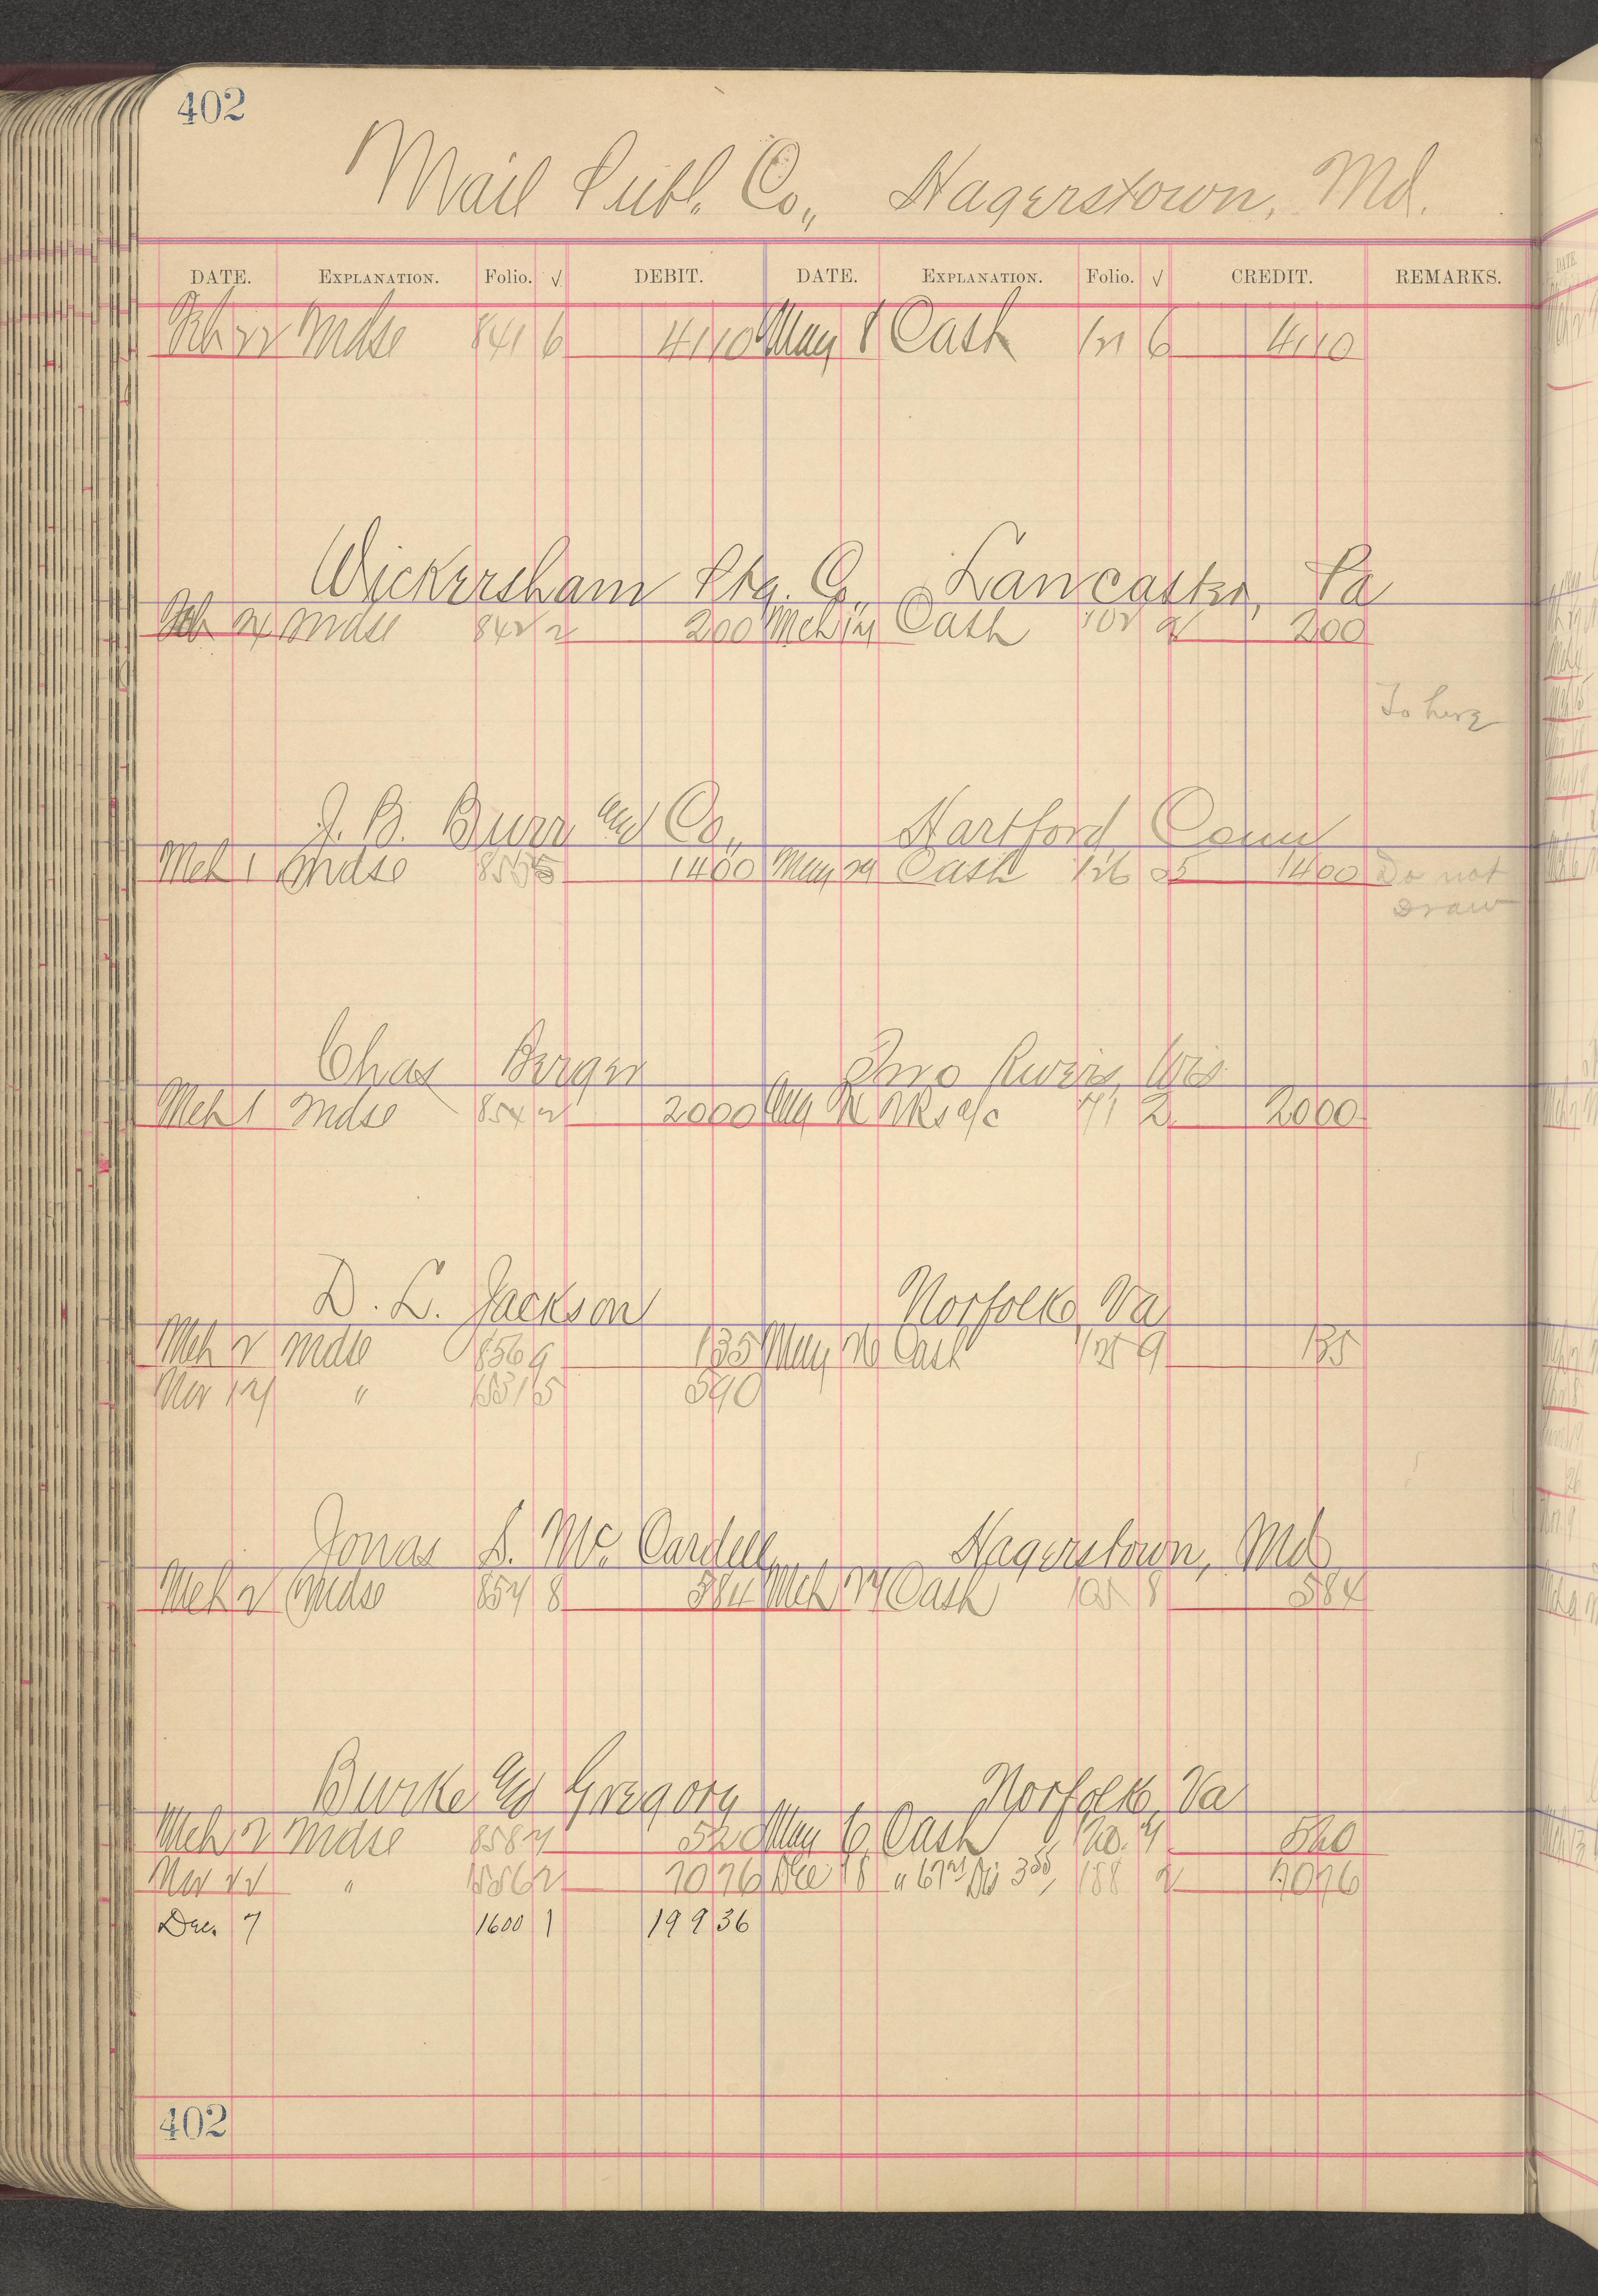 402
Mail Publ. Co., Hagerstown, Md.
DATE. EXPLANATION. Folio. √ DEBIT. DATE. EXPLANATION. Folio. √ CREDIT. REMARKS.
Feb 22 Mdse 841 6 4110 May 8 Cash 121 6 4110
Wickersham Ptg. Co., Lancaster, Pa
Feb 24 Mdse 842 2 200 Mch 14 Cash 102 2 200
To here
J. B. Burr and Co., Hartford Conn
Mch 1 Mdse 5 1400 May 29 Cash 126 1400 Do not
Draw
Chas Berger Two Rivers, Wis
Mch 1 Mdse 854 2 2000 2 2000
D. L. Jackson Norfolk, Va
Mch 2 Mdse 856 9 135 May 26 Cash 125 9 135
Nov 14 " 1551 5 590
Jonas S. McCardell, Hagerstown, Md
Mch 2 Mdse 857 8 584 Mch 24 Cash 105 8 584
Burke and Gregory Norfolk, Va
Mch 2 Mdse 858 4 520 May 6 Cash 120 4 520
Nov 22 " 1556 2 7076 Dec 18 " 188 2 7076
Dec. 7 1600 1 199 36
402